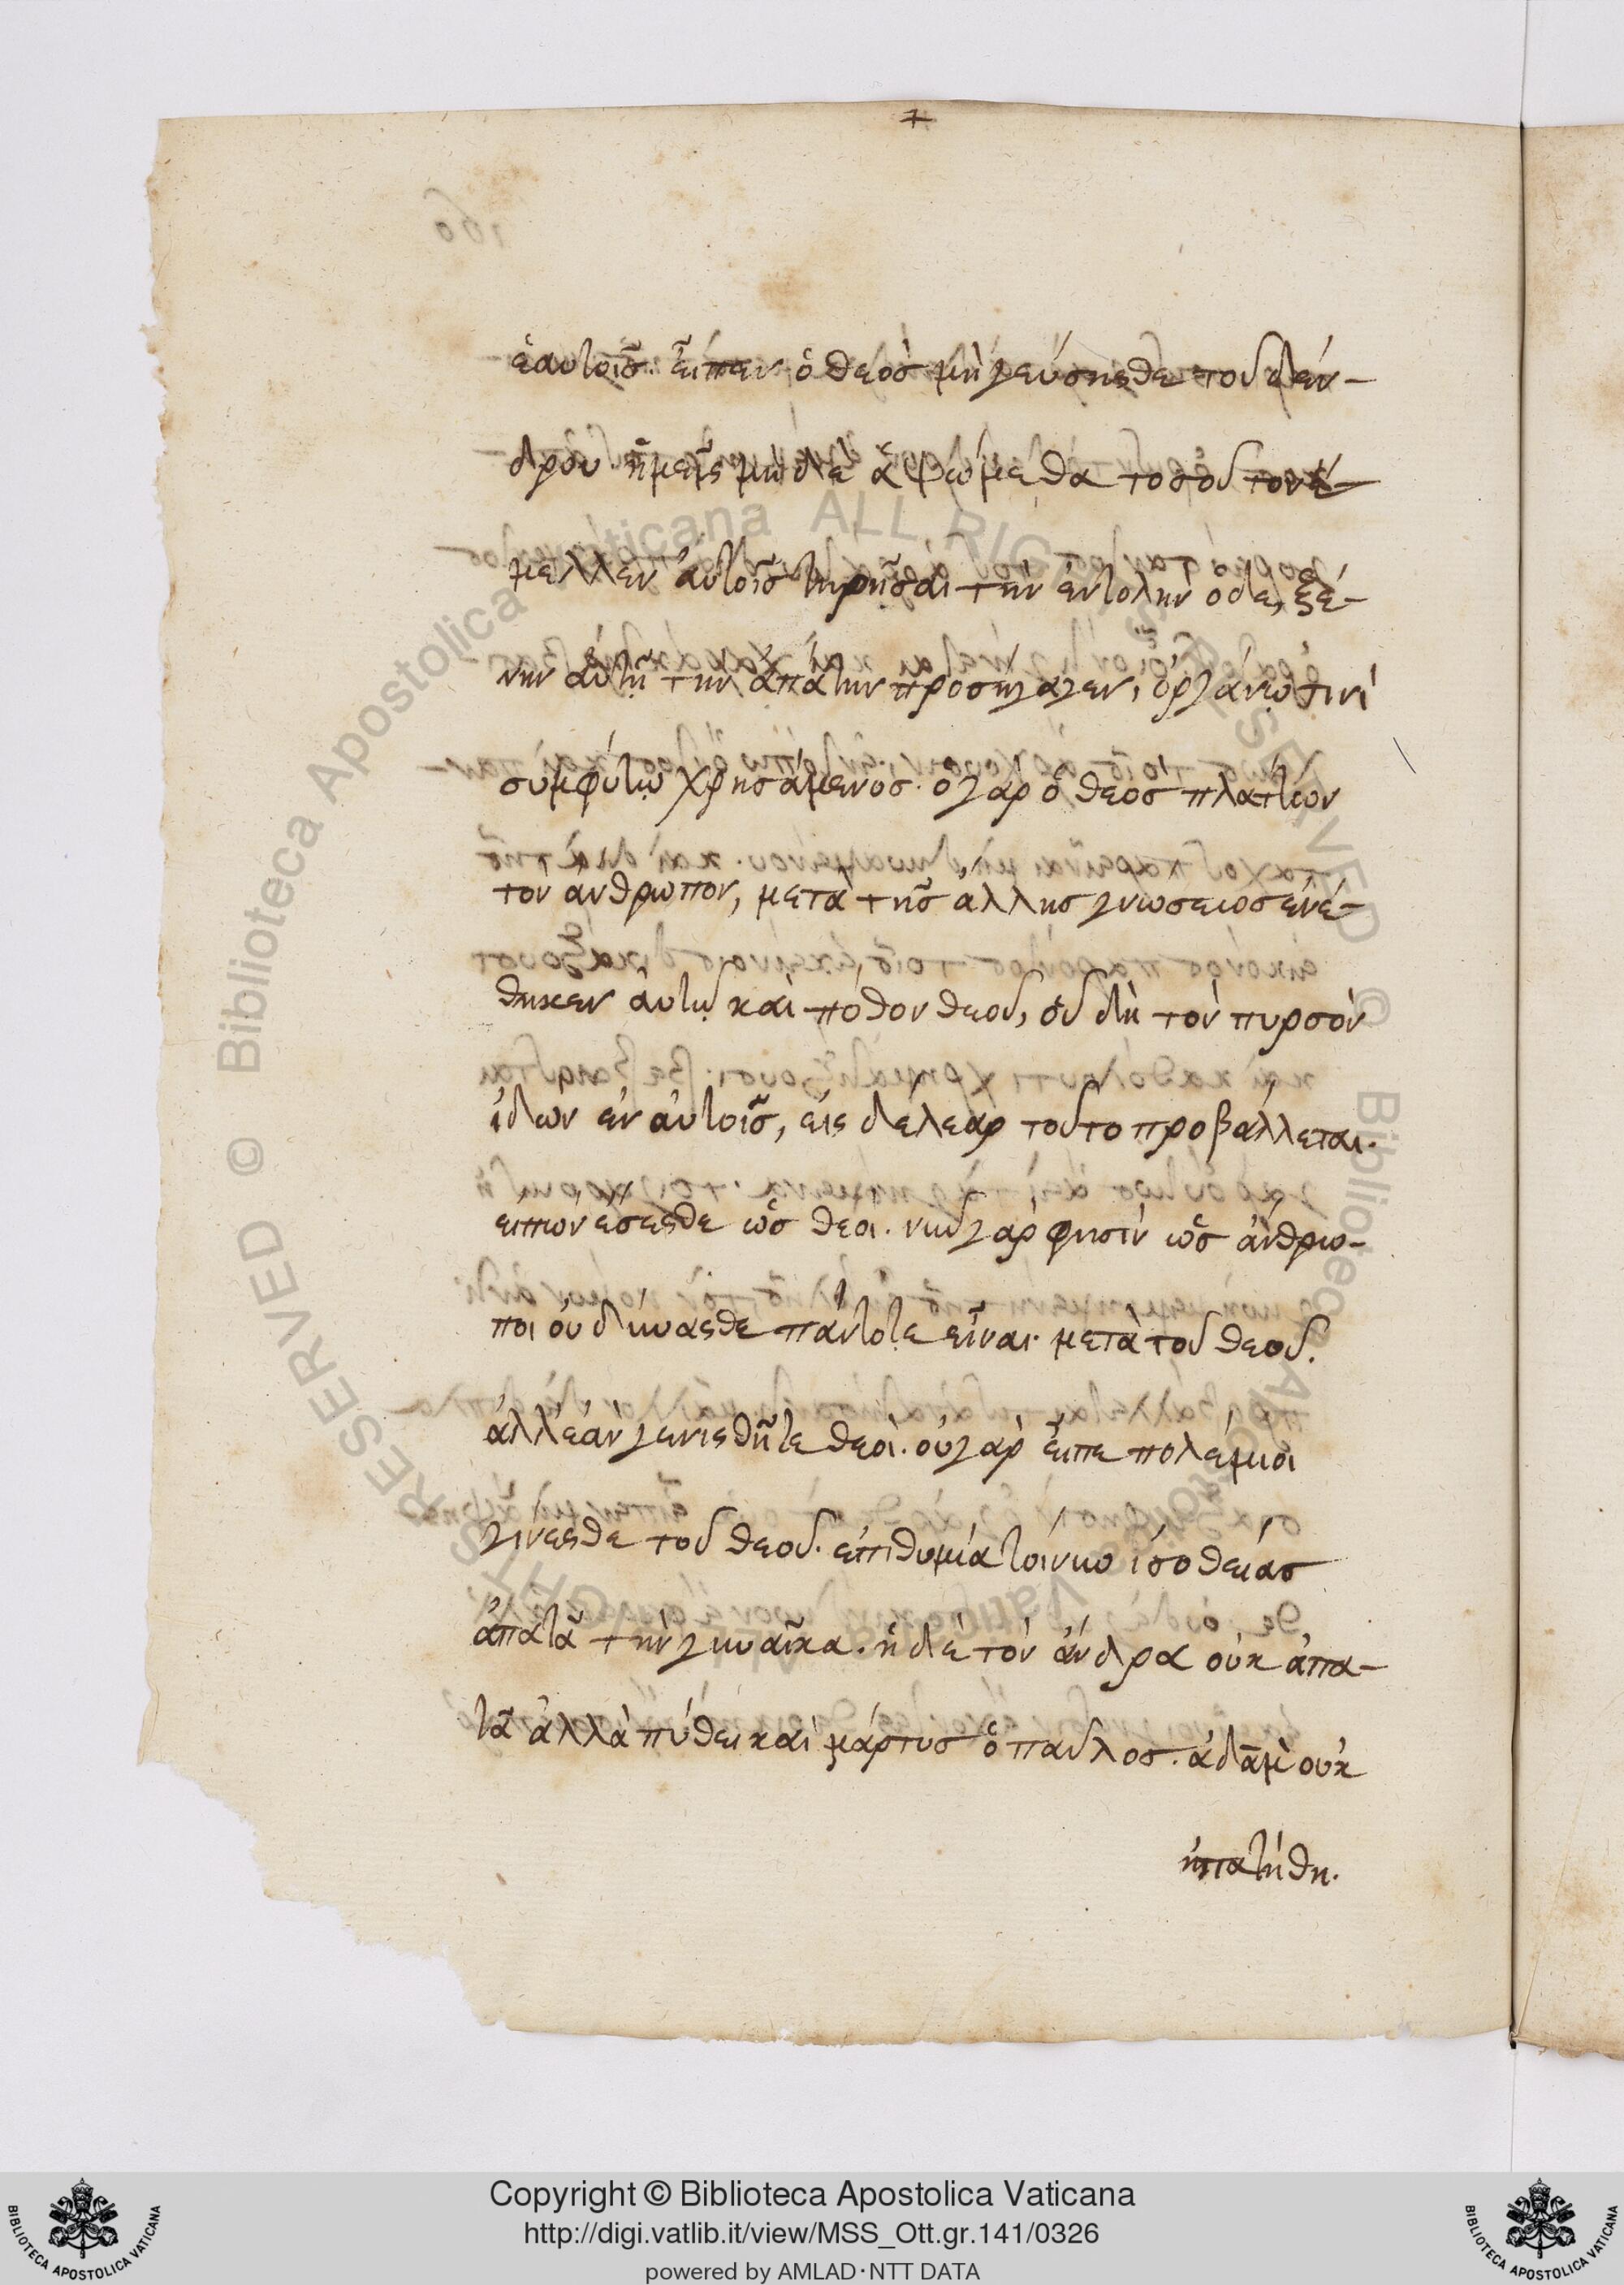 ἑαυτοῖς. εἶπεν ὁ θεὸς μὴ γεύσησθε τοῦ δέν-
δρου ἡμεῖς μηδὲ ἁψώμεθα τοσοῦτον ἔ-
μελλεν αὐτοῖς τηρῆσαι τὴν ἐντολὴν ὁ δὲ, ξέ-
νην αὐτῇ τὴν ἀπάτην προσήγαγεν, ὀργάνῳ τινὶ
συμφύτῳ χρησάμενος. ὁ γὰρ ὁ θεὸς πλάττων
τὸν ἄνθρωπον, μετὰ τῆς ἄλλης γνώσεως ἐνέ-
θηκεν αὐτῷ καὶ πόθον θεοῦ, οὗ δὴ τὸν πυρσὸν
ἰδὼν ἐν αὐτοῖς, εἰς δέλεαρ τοῦτο προβάλλεται.
εἰπὼν ἔσεσθε ὡς θεοι. νῦν γὰρ φησὶν ὡς ἄνθρω-
ποι οὐ δύνασθε πάντοτε εἶναι μετὰ τοῦ θεοῦ.
ἀλλ' ἐὰν γενησθῆτε θεοὶ. οὐ γὰρ εἶπε πολέμιοι
γίνεσθε τοῦ θεοῦ. ἐπιθυμία τοίνυν ἰσοθείας
ἀπατᾶ τὴν γυναῖκα. ἡ δὲ τὸν ἄνδρα οὐκ ἀπα-
τᾶ ἀλλὰ πείθει καὶ μάρτυς ὁ παῦλος. ἀδὰμ οὐκ
ἠπατήθη.
Copyright © Biblioteca Apostolica Vaticana
http://digi.vatlib.it/view/MSS_Ott.gr.141/0326
powered by AMLAD·NTT DATA